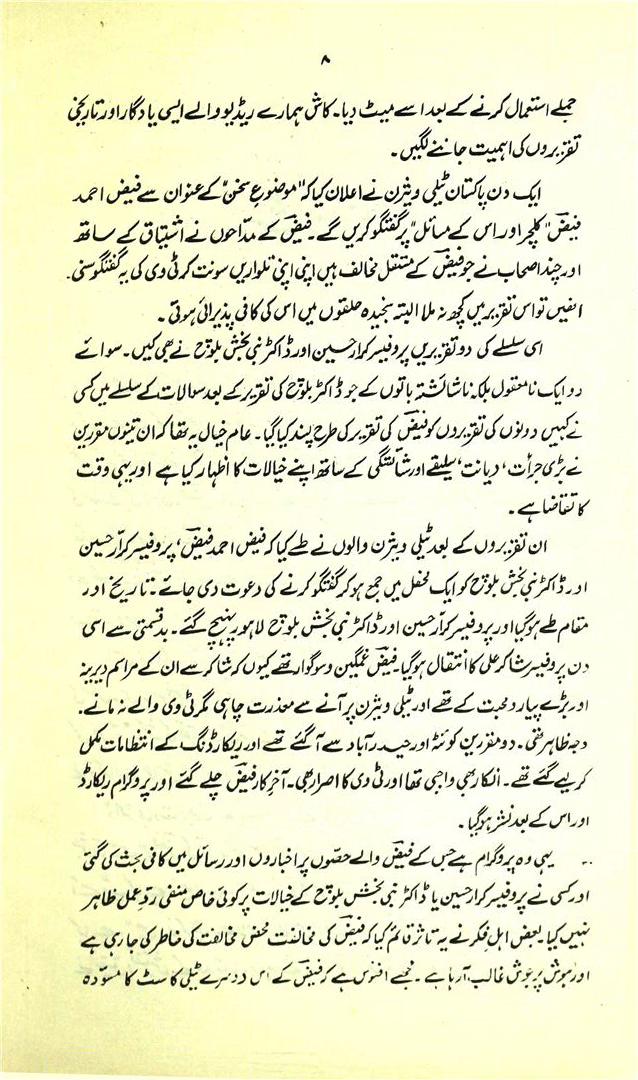 ۸
جملے استعمال کرنے کے بعد اسے میٹ دیا۔ کاش ہمارے ریڈیو والے ایسی یادگار اور تاریخی
تقریروں کی اہمیت جاننے لگیں۔
ایک دن پاکستان ٹیلی ویژن نے اعلان کیا کہ "موضوعِ سخن" کے عنوان سے فیض احمد
فیضؔ "کلچر اور اس کے مسائل" پر گفتگو کریں گے۔ فیضؔ کے مدّاحوں نے اشتیاق کے ساتھ
اور چند اصحاب نے جو فیضؔ کے مستقل مخالف ہیں اپنی اپنی تلواریں سونت کر ٹی وی کی یہ گفتگو سنی۔
انھیں تو اس تقریر میں کچھ نہ ملا البتہ سنجیدہ حلقوں میں اس کی کافی پذیرائی ہوتی۔
اسی سلسلے کی دو تقریریں پروفیسر کرار حسین اور ڈاکٹر نبی بخش بلوچ نے بھی کیں۔ سوائے
دو ایک نامعقول بلکہ ناشائشتہ باتوں کے جو ڈاکٹر بلوچ کی تقریر کے بعد سوالات کے سلسلے میں کسی
نے کہیں دونوں کی تقریروں کو فیضؔ کی تقریر کی طرح پسند کیا گیا۔ عام خیال یہ تھا کہ ان تینوں مقررین
نے بڑی جرأت، دیانت، سلیقے اور شائستگی کے ساتھ اپنے خیالات کا اظہار کیا ہے اور یہی وقت
کا تقاضا ہے۔
ان تقریروں کے بعد ٹیلی ویژن والوں نے طے کیا کہ فیض احمد فیضؔ، پروفیسر کرّار حسین
اور ڈاکٹر نبی بخش بلوچ کو ایک محفل میں جمع ہو کر گفتگو کرنے کی دعوت دی جائے۔ تاریخ اور
مقام طے ہوگیا اور پروفیسر کرّار حسین اور ڈاکٹر نبی بخش بلوچ لاہور پہنچ گئے۔ بدقسمتی سے اسی
دن پروفیسر شاکر علی کا انتقال ہوگیا۔ فیضؔ غمگین و سوگوار تھے کیوں کہ شاکر سے ان کے مراسم دیرینہ
اور بڑے پیار و محبت کے تھے اور ٹیلی ویژن پر آنے سے معذرت چاہی مگر ٹی وی والے نہ مانے۔
وجہ ظاہر تھی۔ دو مقررین کوئٹہ اور حیدرآباد سے آگئے تھے اور ریکارڈنگ کے انتظامات مکمل
کر لیے گئے تھے۔ انکار بھی واجبی تھا اور ٹی وی کا اصرار بھی۔ آخر کار فیضؔ چلے گئے اور پروگرام ریکارڈ
اور اس کے بعد نشر ہوگیا۔
یہی وہ پروگرام ہے جس کے فیضؔ والے حصّوں پر اخباروں اور رسائل میں کافی بحث کی گئی
اور کسی نے پروفیسر کرار حسین یا ڈاکٹر نبی بخش بلوچ کے خیالات پر کوئی خاص منفی ردِّعمل ظاہر
نہیں کیا۔ بعض اہلِ فکر نے یہ تاثر قائم کیا کہ فیضؔ کی مخالفت محض مخالفت کی خاطر کی جا رہی ہے
اور ہوش پر جوش غالب آرہا ہے۔ مجھے افسوس ہے کہ فیضؔ کے اس دوسرے ٹیلی کاسٹ کا مسوّدہ